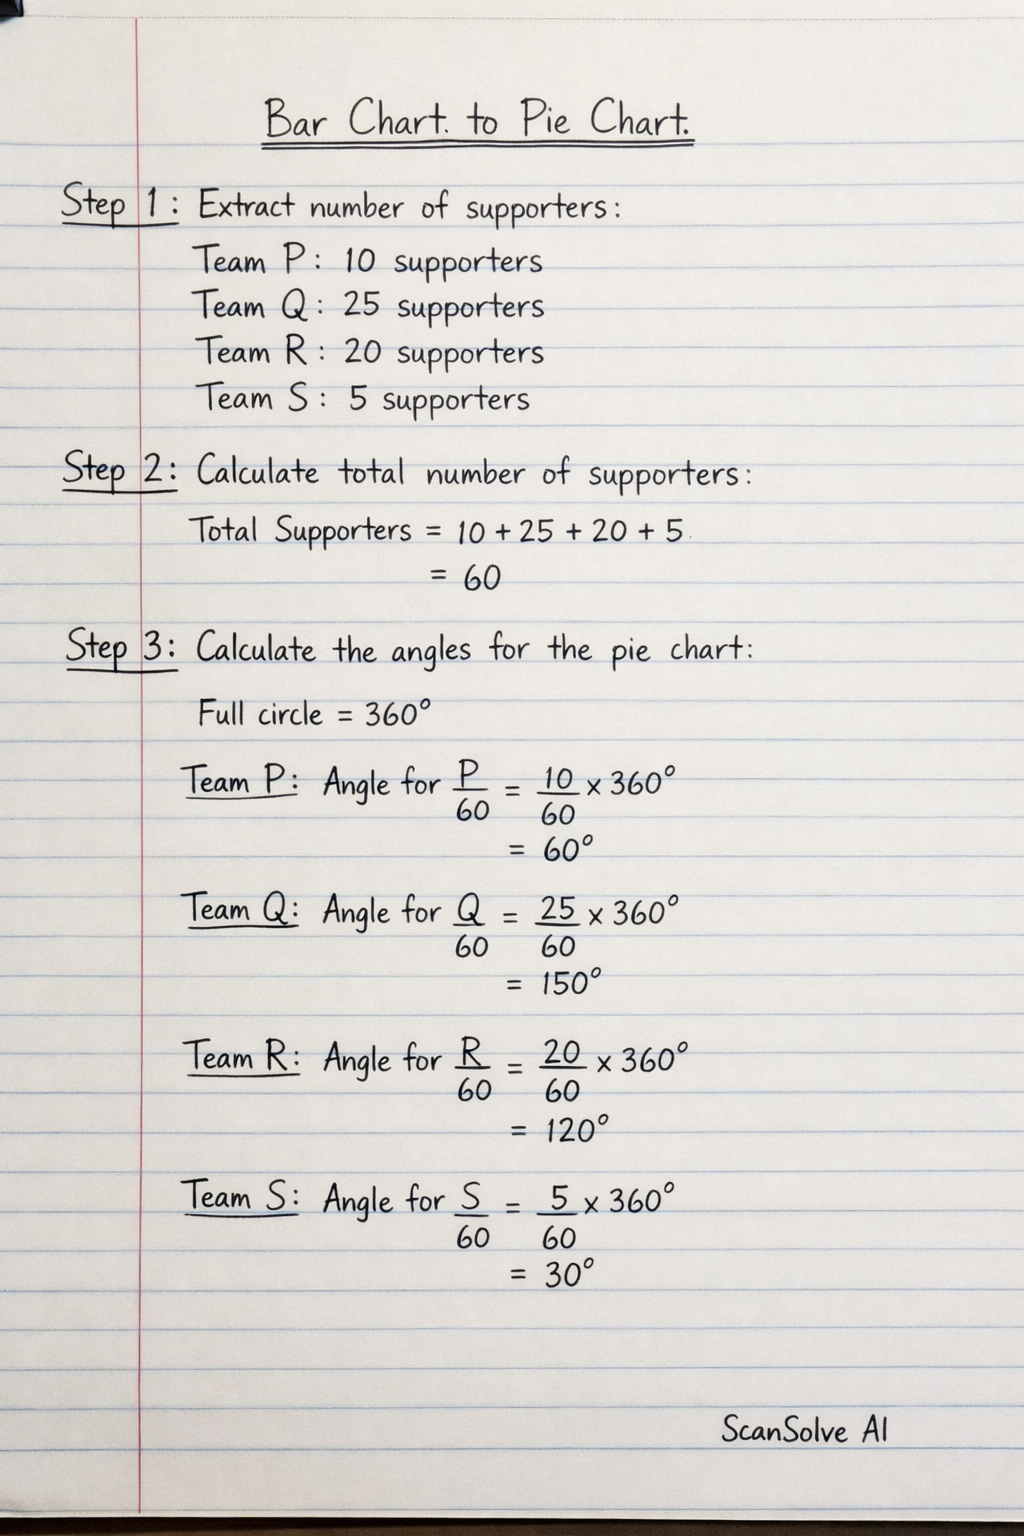 Bar Chart. to Pie Chart.
Step 1: Extract number of supporters:
Team P: 10 supporters
Team Q: 25 supporters
Team R: 20 supporters
Team S: 5 supporters
Step 2: Calculate total number of supporters:
Total Supporters = 10 + 25 + 20 + 5
= 60
Step 3: Calculate the angles for the pie chart:
Full circle = 360°
Team P: Angle for P/60 = 10/60 x 360°
= 60°
Team Q: Angle for Q/60 = 25/60 x 360°
= 150°
Team R: Angle for R/60 = 20/60 x 360°
= 120°
Team S: Angle for S/60 = 5/60 x 360°
= 30°
ScanSolve AI